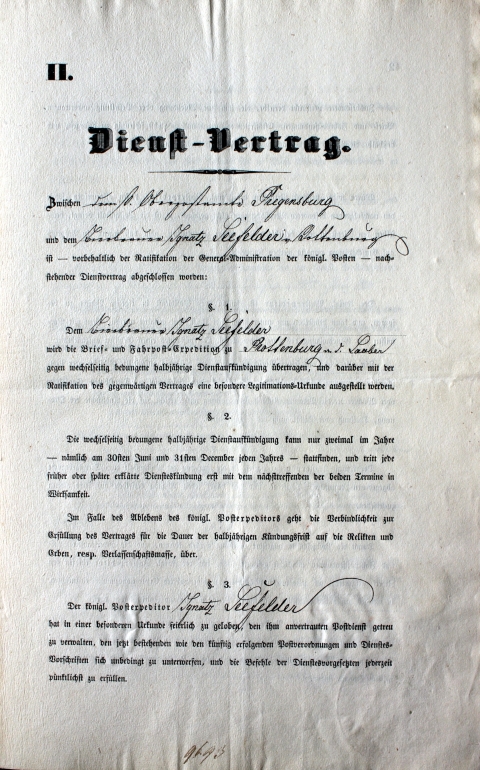 II.
Dienst-Vertrag.
Zwischen dem k. Oberpostamte Regensburg
und dem Bierbrauer Ignatz Seefelder v. Rottenburg
ist — vorbehaltlich der Ratifikation der General-Administration der königl. Posten — nach-
stehender Dienstvertrag abgeschlossen worden:
§. 1.
Dem Bierbrauer Ignatz Seefelder
wird die Brief- und Fahrpost-Expedition zu Rottenburg a. d. Laaber
gegen wechselseitig bedungene halbjährige Dienstaufkündigung übertragen, und darüber mit der
Ratifikation des gegenwärtigen Vertrages eine besondere Legitimations-Urkunde ausgestellt werden.
§. 2.
Die wechselseitig bedungene halbjährige Dienstaufkündigung kann nur zweimal im Jahre
— nämlich am 30sten Juni und 31sten December jeden Jahres — stattfinden, und tritt jede
früher oder später erklärte Diensteskündung erst mit dem nächsttreffenden der beiden Termine in
Wirksamkeit.
Im Falle des Ablebens des königl. Postexpeditors geht die Verbindlichkeit zur
Erfüllung des Vertrages für die Dauer der halbjährigen Kündungsfrist auf die Relikten und
Erben, resp. Verlassenschaftsmasse, über.
§. 3.
Der königl. Postexpeditor Ignatz Seefelder
hat in einer besonderen Urkunde feierlich zu geloben, den ihm anvertrauten Postdienst getreu
zu verwalten, den jetzt bestehenden wie den künftig erfolgenden Postverordnungen und Dienstes-
Vorschriften sich unbedingt zu unterwerfen, und die Befehle der Dienstesvorgesetzten jederzeit
pünktlichst zu erfüllen.